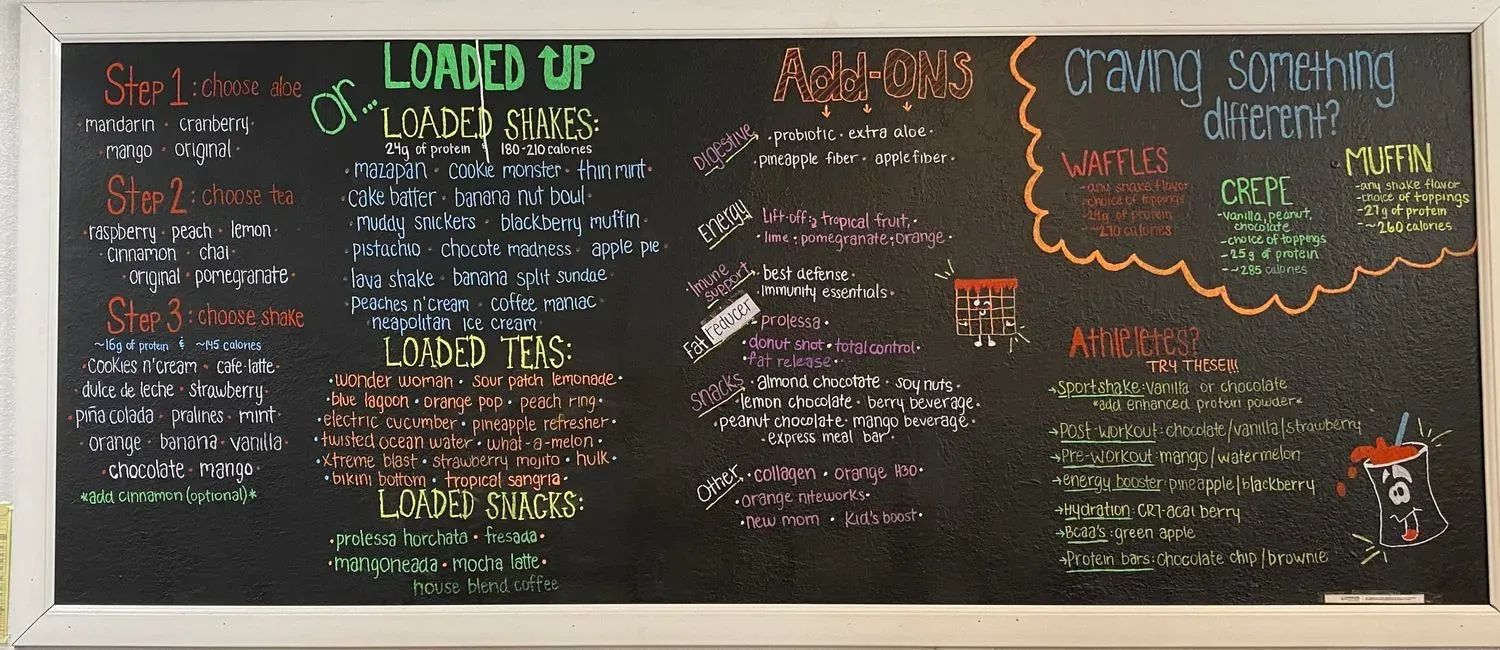 Step 1: choose aloe
mandarin · cranberry
· mango · original ·
Step 2: choose tea
raspberry · peach · lemon
· cinnamon · chai ·
original · pomegranate ·
Step 3: choose shake
~16g of protein & ~145 calories
· cookies n'cream · cafe latte ·
dulce de leche · strawberry ·
· piña colada · pralines · mint ·
orange · banana · vanilla ·
· chocolate · mango ·
*add cinnamon (optional)*
or...
LOADED UP
LOADED SHAKES:
24g of protein & 180-210 calories
· mazapan · cookie monster · thin mint ·
cake batter · banana nut bowl ·
· muddy snickers · blackberry muffin ·
· pistachio · chocote madness · apple pie
· lava shake · banana split sundae ·
· peaches n'cream · coffee maniac ·
· neapolitan ice cream ·
LOADED TEAS:
· wonder woman · sour patch lemonade ·
· blue lagoon · orange pop · peach ring ·
· electric cucumber · pineapple refresher ·
· twisted ocean water · what-a-melon ·
· xtreme blast · strawberry mojito · hulk ·
· bikini bottom · tropical sangria ·
LOADED SNACKS:
· prolessa horchata · fresada ·
· mangoneada · mocha latte ·
house blend coffee
Add-ONS
Digestive
· probiotic · extra aloe ·
· pineapple fiber · apple fiber ·
ENERGY
Lift-off: tropical fruit,
· lime · pomegranate · orange ·
Imune support
· best defense ·
· immunity essentials ·
Fat reducer
· prolessa ·
· donut shot · total control ·
· fat release ·
SNACKS
· almond chocotate · soy nuts ·
· lemon chocolate · berry beverage ·
· peanut chocolate · mango beverage ·
· express meal bar ·
Other
· collagen · orange H30 ·
· orange niteworks ·
· new mom · Kid's boost ·
Craving something
different?
WAFFLES
- any shake flavor
- choice of toppings
- 24g of protein
- ~270 calories
CREPE
- vanilla, peanut,
chocolate
- choice of toppings
- 25g of protein
- ~285 calories
MUFFIN
- any shake flavor
- choice of toppings
- 27g of protein
- ~260 calories
Athleletes?
TRY THESE!!!
→ Sportshake: vanilla or chocolate
*add enhanced protein powder*
→ Post-workout: chocolate/vanilla/strawberry
→ Pre-workout: mango/watermelon
→ energy booster: pineapple/blackberry
→ Hydration: CR7-acai berry
→ Bcaa's: green apple
→ Protein bars: chocolate chip/brownie